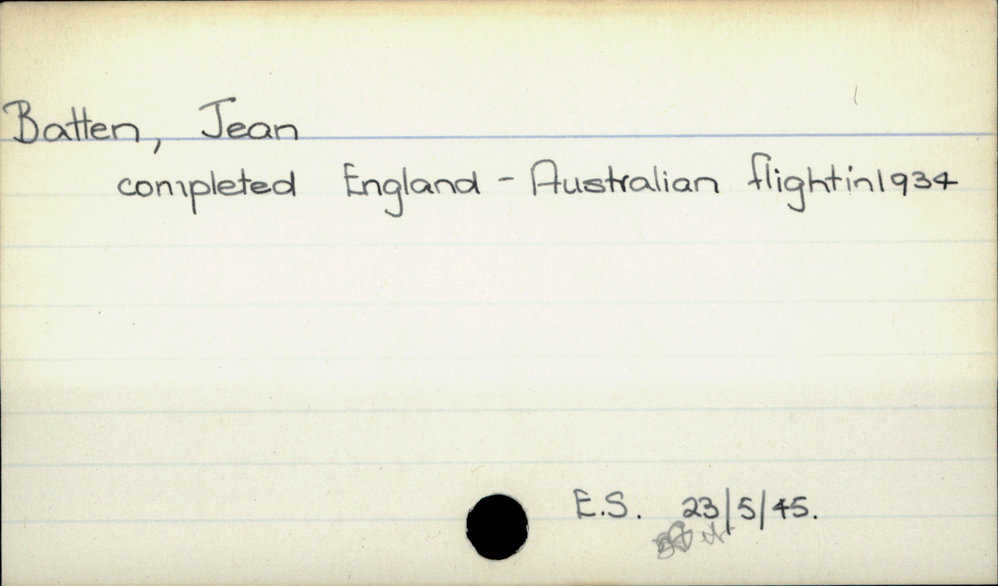 Batten, Jean
completed England - Australian flight in 1934
E.S. 23/5/45.